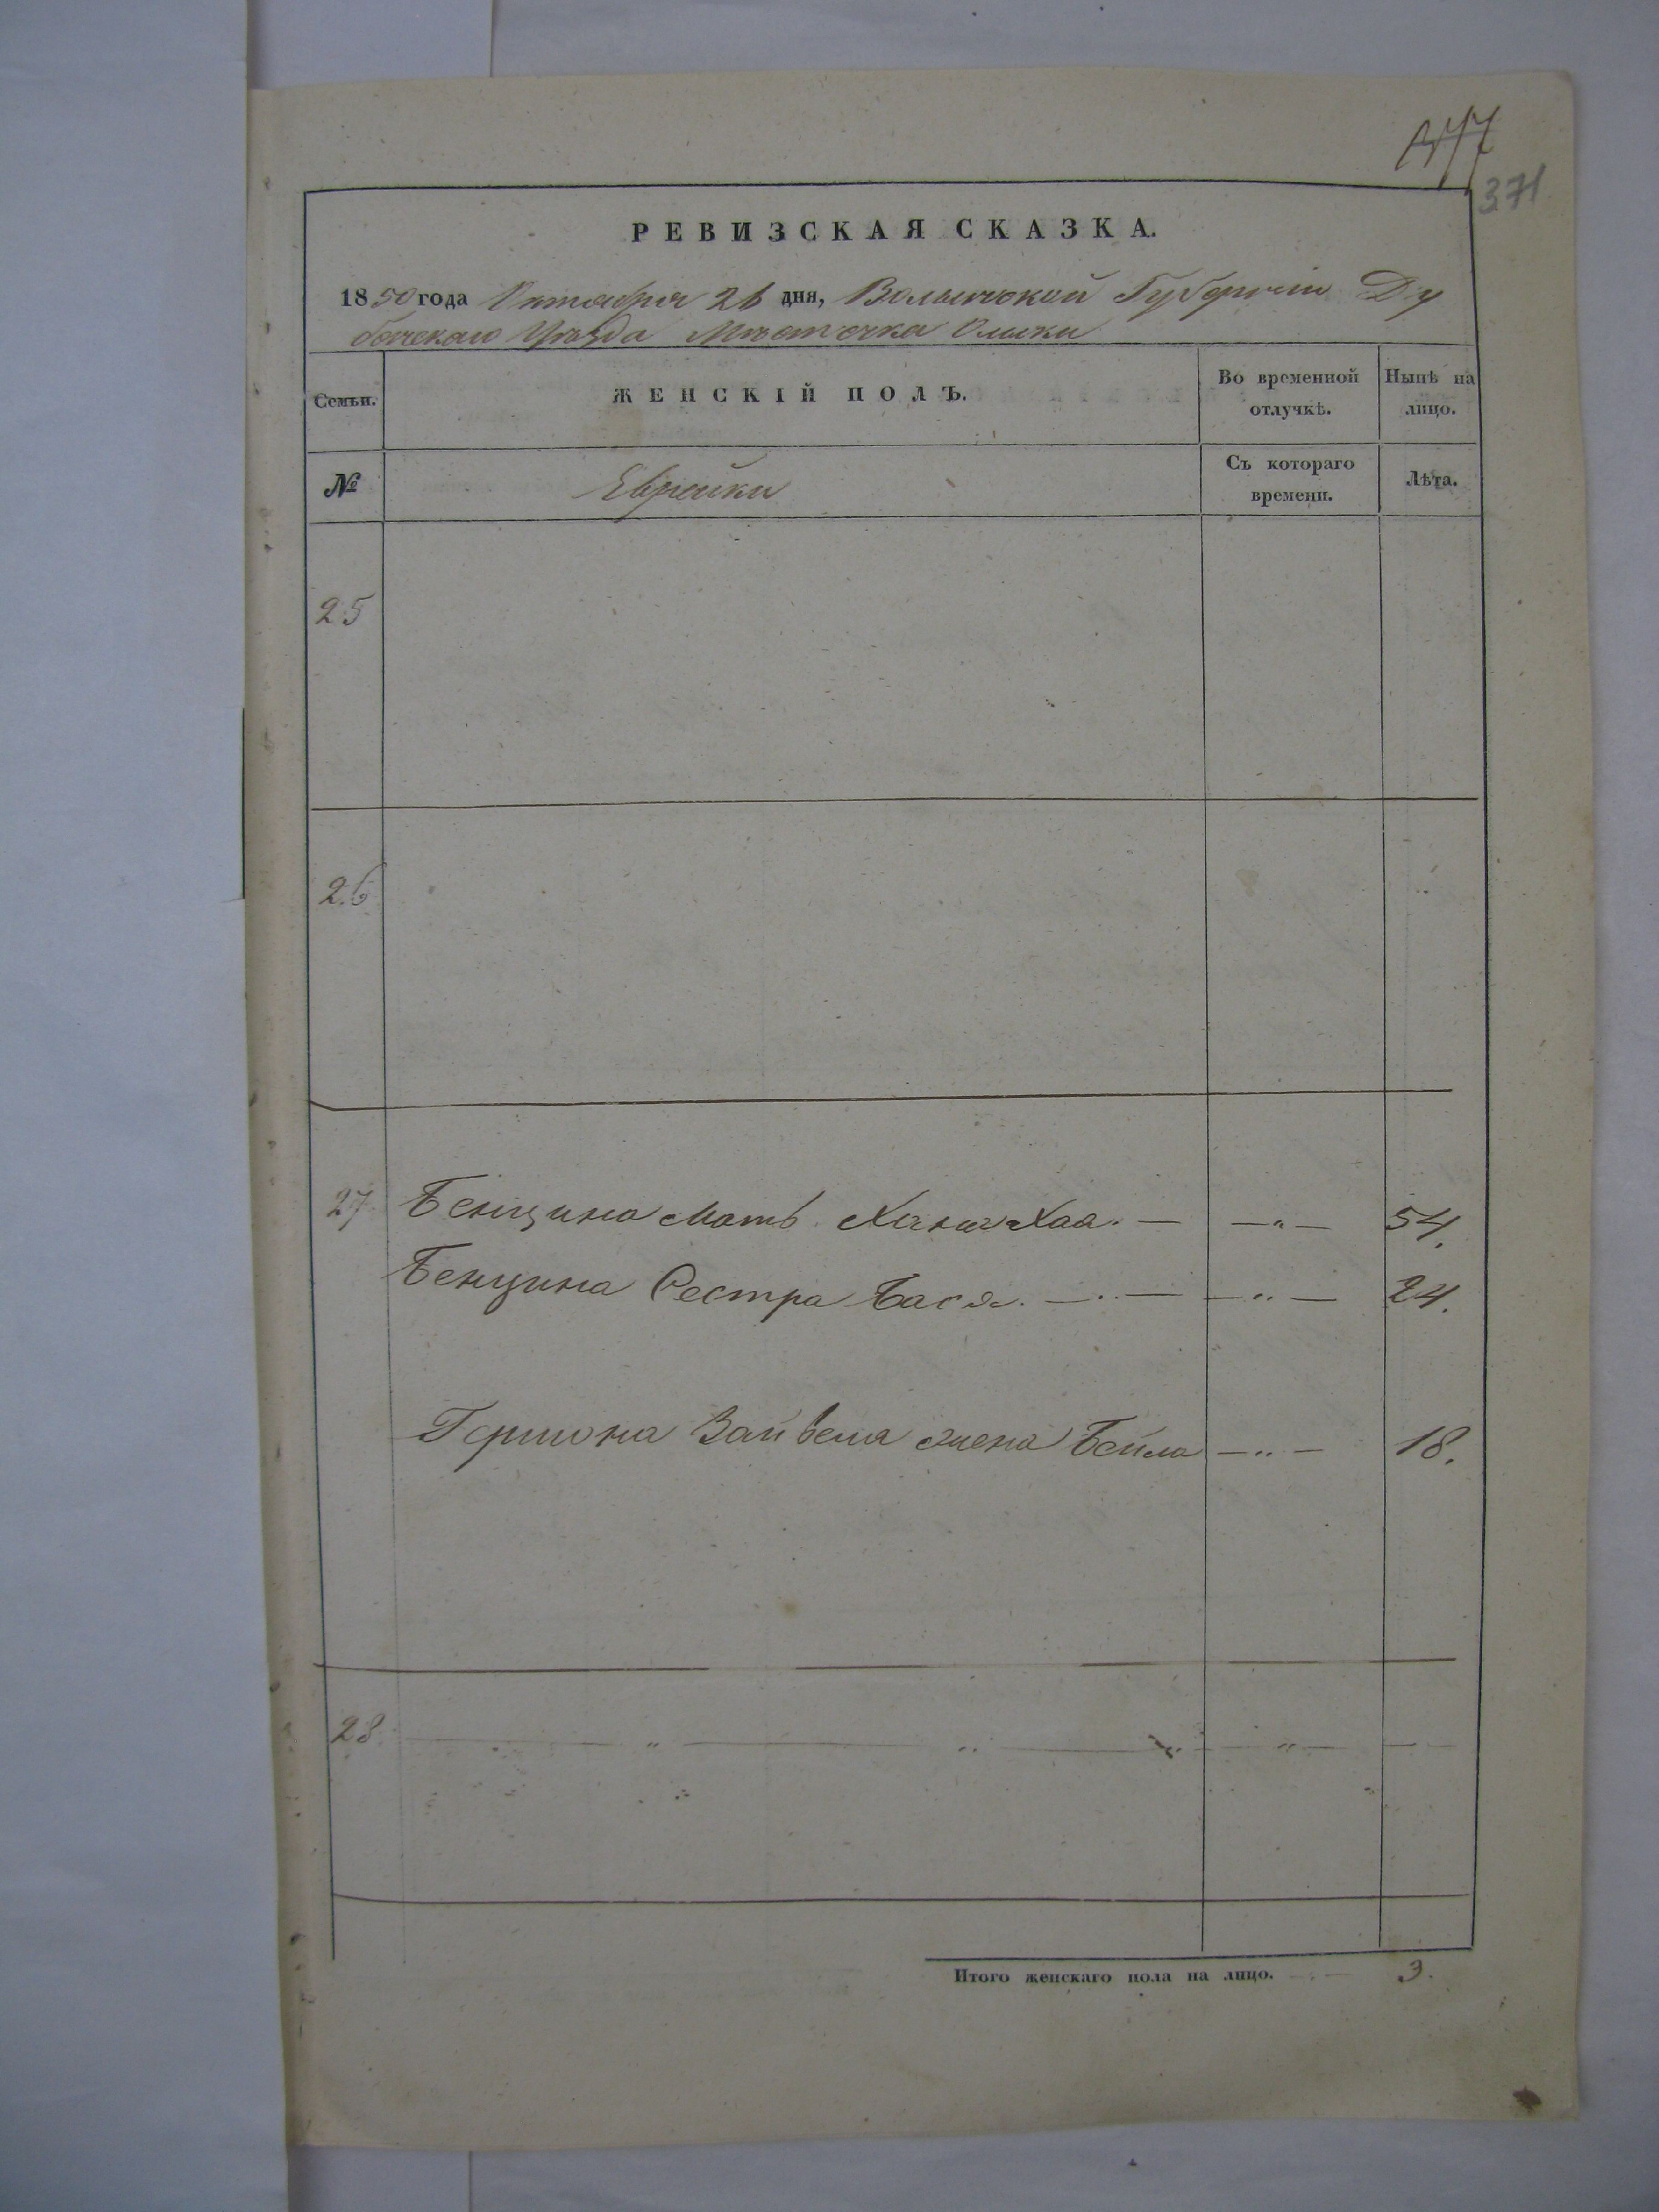 371
РЕВИЗСКАЯ СКАЗКА.
1850 года Октября 26 дня, Волынской Губернiи Ду
бенскаго Уѣзда Мѣстечка Олыки
Семьи.
ЖЕНСКІЙ ПОЛЪ.
Во временной отлучкѣ.
Нынѣ на лицо.
№
Еврейки
Съ котораго времени.
Лѣта.
25
26
27 Бенцина Мать Хана Хая. — —"— 54.
Бенцина Сестра Бася. —..— —..— 24.
Гершона Зайвеля жена Бейла —..— 18.
28 — " — .. — " — " — —
Итого женскаго пола на лицо. — 3.